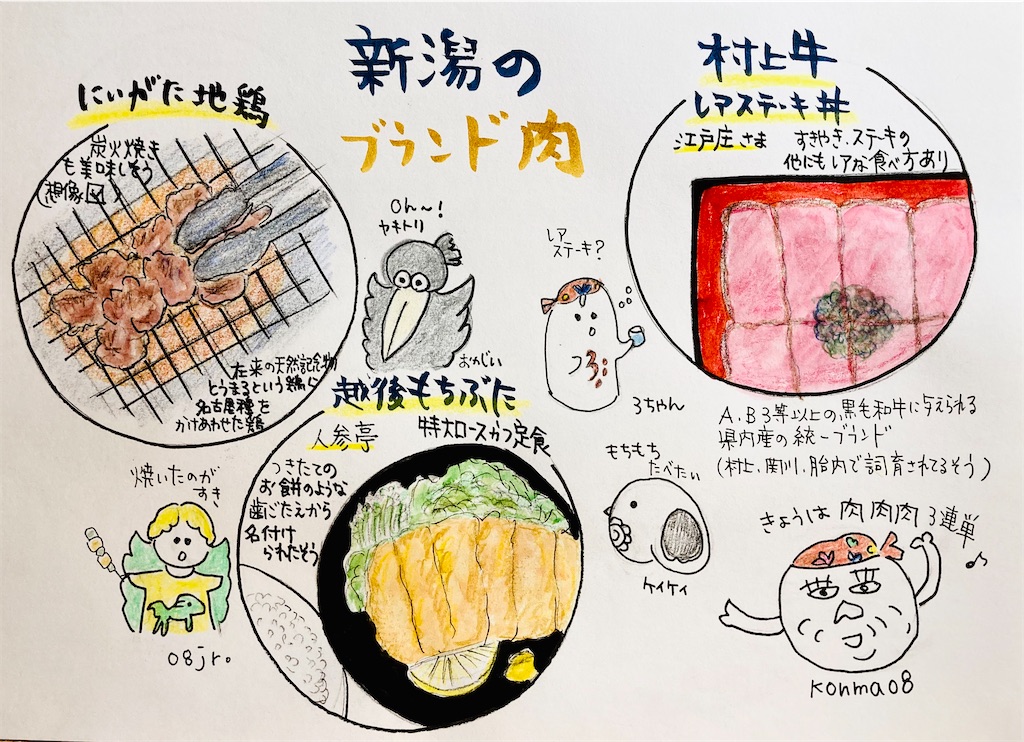 新潟の
ブランド肉
にいがた地鶏
炭火焼き
も美味しそう
(想像図)
在来の天然記念物
とうまるという鶏ら
名古屋種を
かけあわせた鶏
Oh〜!
ヤキトリ
おめじい
レア
ステーキ?
つ3
3ちゃん
村上牛
レアステーキ丼
江戸庄さま
すきやき、ステーキの
他にもレアな食べ方あり
A.B3等以上の黒毛和牛に与えられる
県内産の統一ブランド
(村上、関川、胎内で飼育されてるそう)
越後もちぶた
人参亭
特大ロースカツ定食
つきたての
お餅のような
歯ごたえから
名付け
られたそう
焼いたのが
すき
08jr.
もちもち
たべたい
ケイケイ
きょうは肉肉肉3連単
♪
konma08